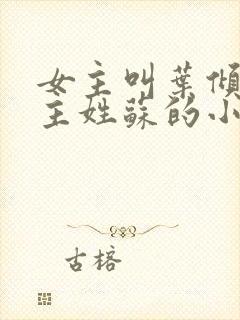 女主叫葉傾
主姓蘇的小
古榕